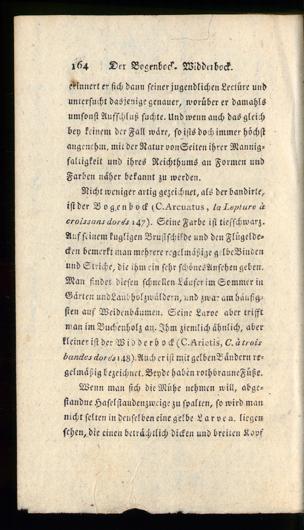 164 Der Bogenbock. Widderbock.
erinnert er sich dann seiner jugendlichen Lectüre und
untersucht dasjenige genauer, worüber er damahls
umsonst Aufschluß suchte. Und wenn auch das gleich
bey keinem der Fall wäre, so ists doch immer höchst
angenehm, mit der Natur von Seiten ihrer Mannig-
faltigkeit und ihres Reichthums an Formen und
Farben näher bekannt zu werden.
Nicht weniger artig gezeichnet, als der bandirte,
ist der Bogenbock (C. Arcuatus, la Lepture à
croissans dorés 147). Seine Farbe ist tiefschwarz.
Auf seinem kugligen Brustschilde und den Flügelde-
cken bemerkt man mehrere regelmäßige gelbe Binden
und Striche, die ihm ein sehr schönes Ansehen geben.
Man findet diesen schnellen Läufer im Sommer in
Gärten und Laubholzwäldern, und zwar am häufig-
sten auf Weidenbäumen. Seine Larve aber trifft
man im Buchenholz an. Ihm ziemlich ähnlich, aber
kleiner ist der Widderbock (C. Arietis, C. à trois
bandes dorés 148). Auch er ist mit gelben Bändern re-
gelmäßig bezeichnet. Beyde haben rothbraune Füße.
Wenn man sich die Mühe nehmen will, abge-
standne Haselstaudenzweige zu spalten, so wird man
nicht selten in denselben eine gelbe Larven liegen
sehen, die einen beträchtlich dicken und breiten Kopf